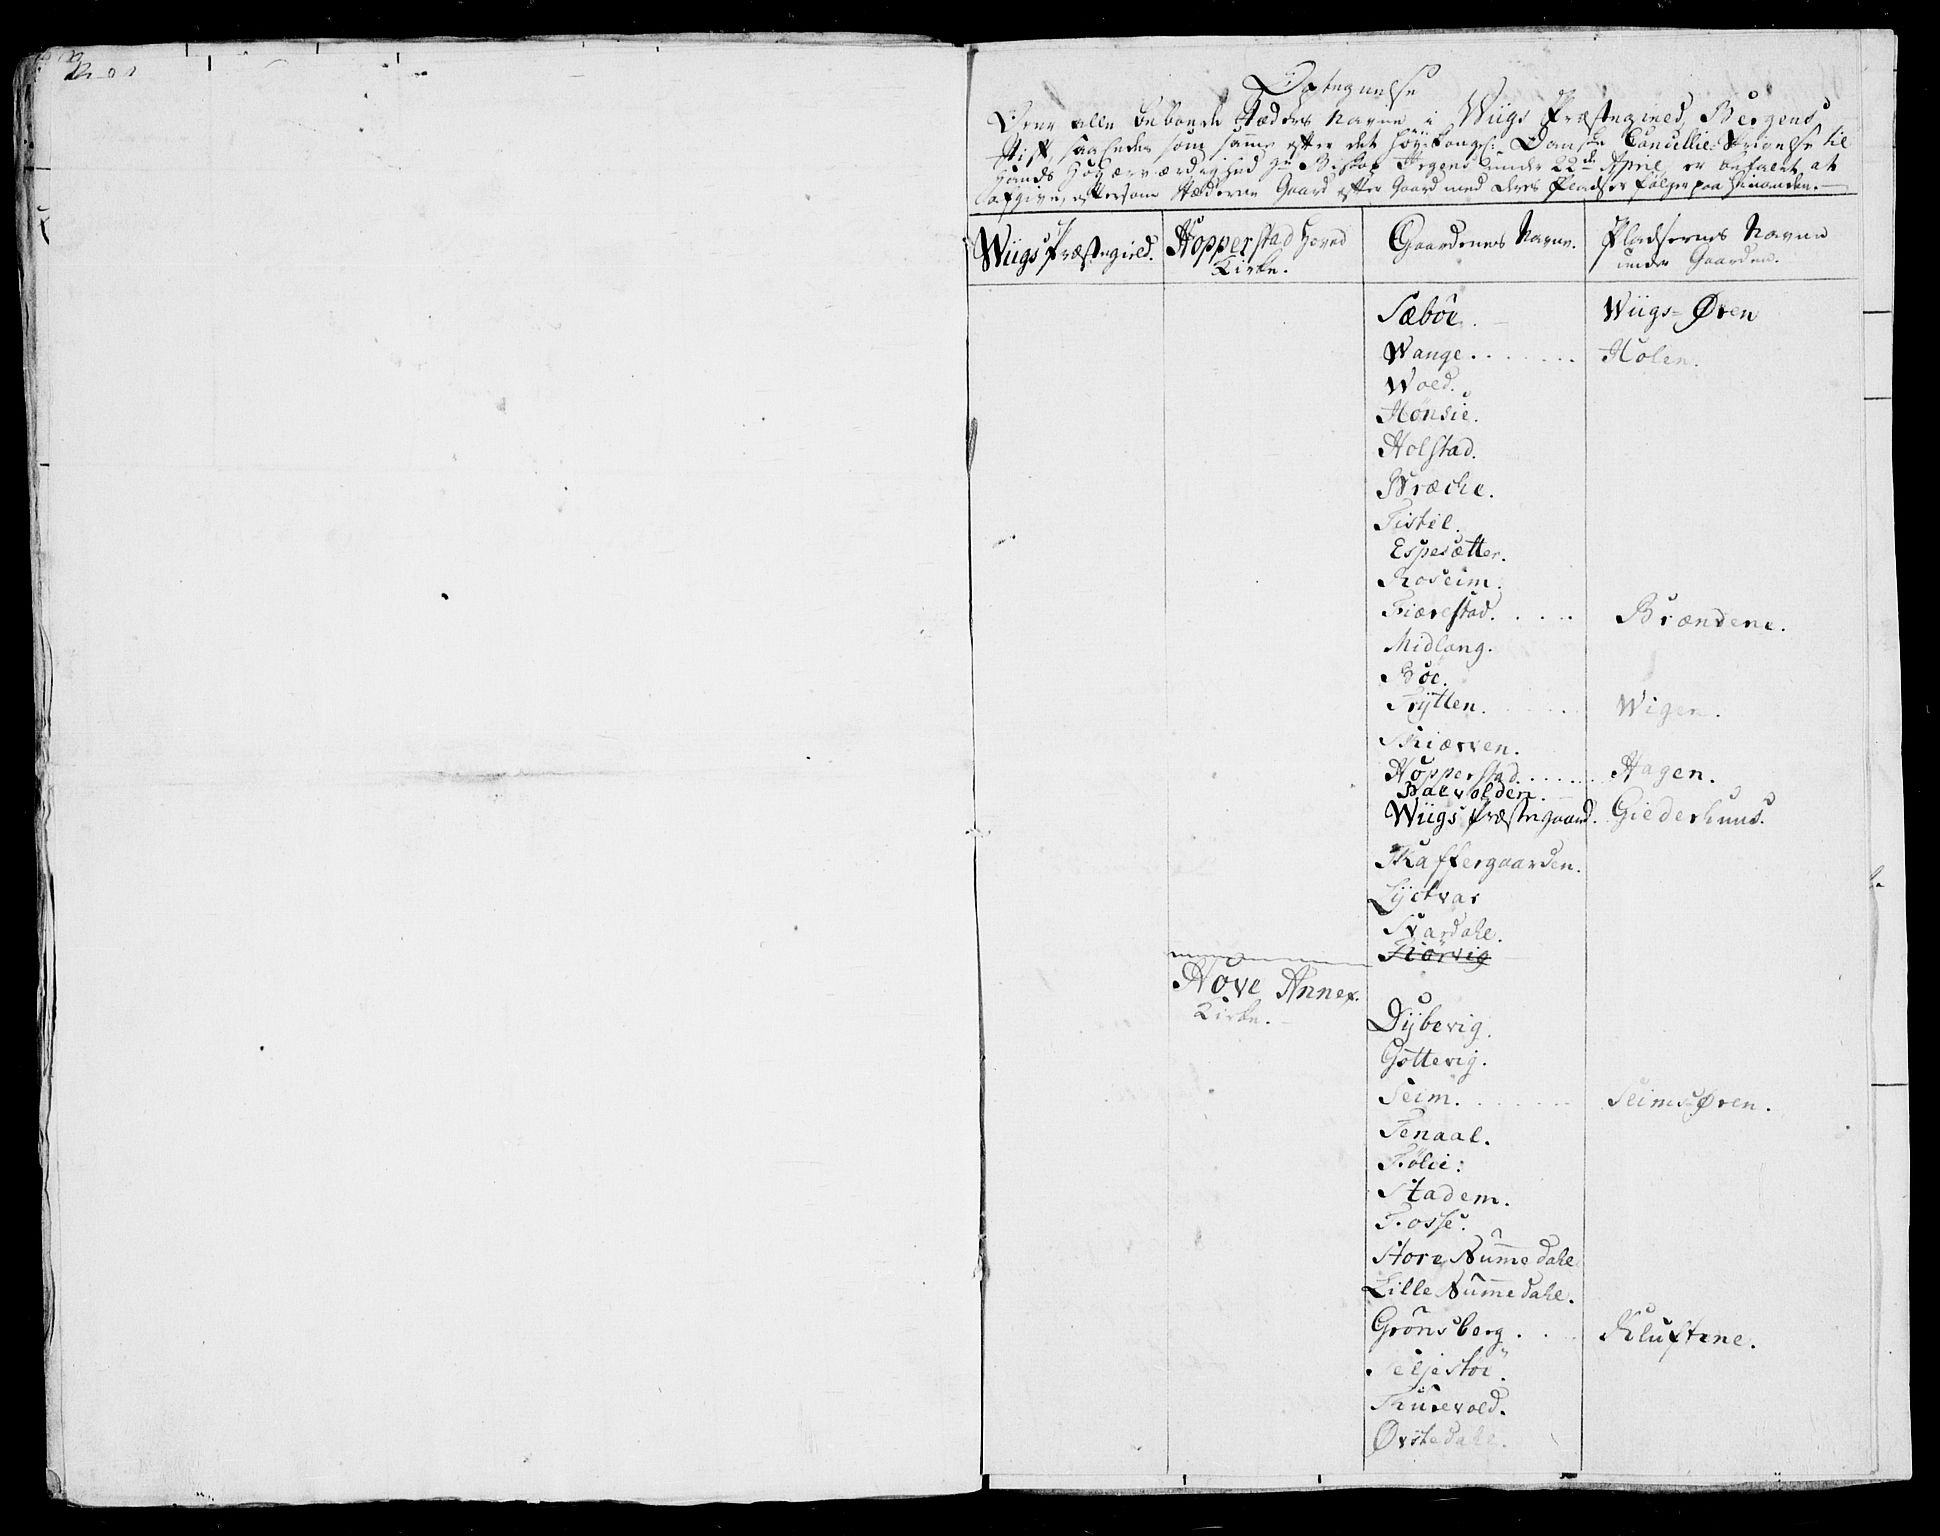 Optegnelse
Over alle beboende Stæders Navne i Wiigs Præstegield, Bergens
Stift, saaledes som samme efter det Høy-Kongel: Danske Cancellie-Skrivelse til
Hands Høyærværdighed Hr Biskop under 22de April, er befalet at
afgive, eftersom Stæderne Gaard efter Gaard med deres Pladser følger paa hinanden.
Wiigs Præstegield. Hopperstad Hoved Gaardenes Navne. Pladsernes Navne
Kirke. under Gaarden.
Sæböe. Wiigs-Øren
Wange. . . . . . . Holen.
Wold.
Hönsie.
Holstad.
Bræche.
Tistel.
Espesætter.
Roseim.
Fiærestad. . . . . Brændene.
Midlang.
Böe.
Trytten. . . . . Wigen.
Skiærven.
Hopperstad. . . . . . Hagen.
Balvolden.
Wiigs Præstegaard. Giederhuus.
Skaffergaarden.
Lyckvar
Svardahl.
Kiørvig
Hove Annex.
Kirke.
Dybevig.
Gottevig.
Seim. . . . . . . Seims-Øren.
Tenaal.
Fölie:
Stadem.
Fosse.
Store Nummedahl
Lille Nummedahl.
Grönsberg. . . Kluftene.
Seljestöe.
Kusevold.
Øvstedahl.